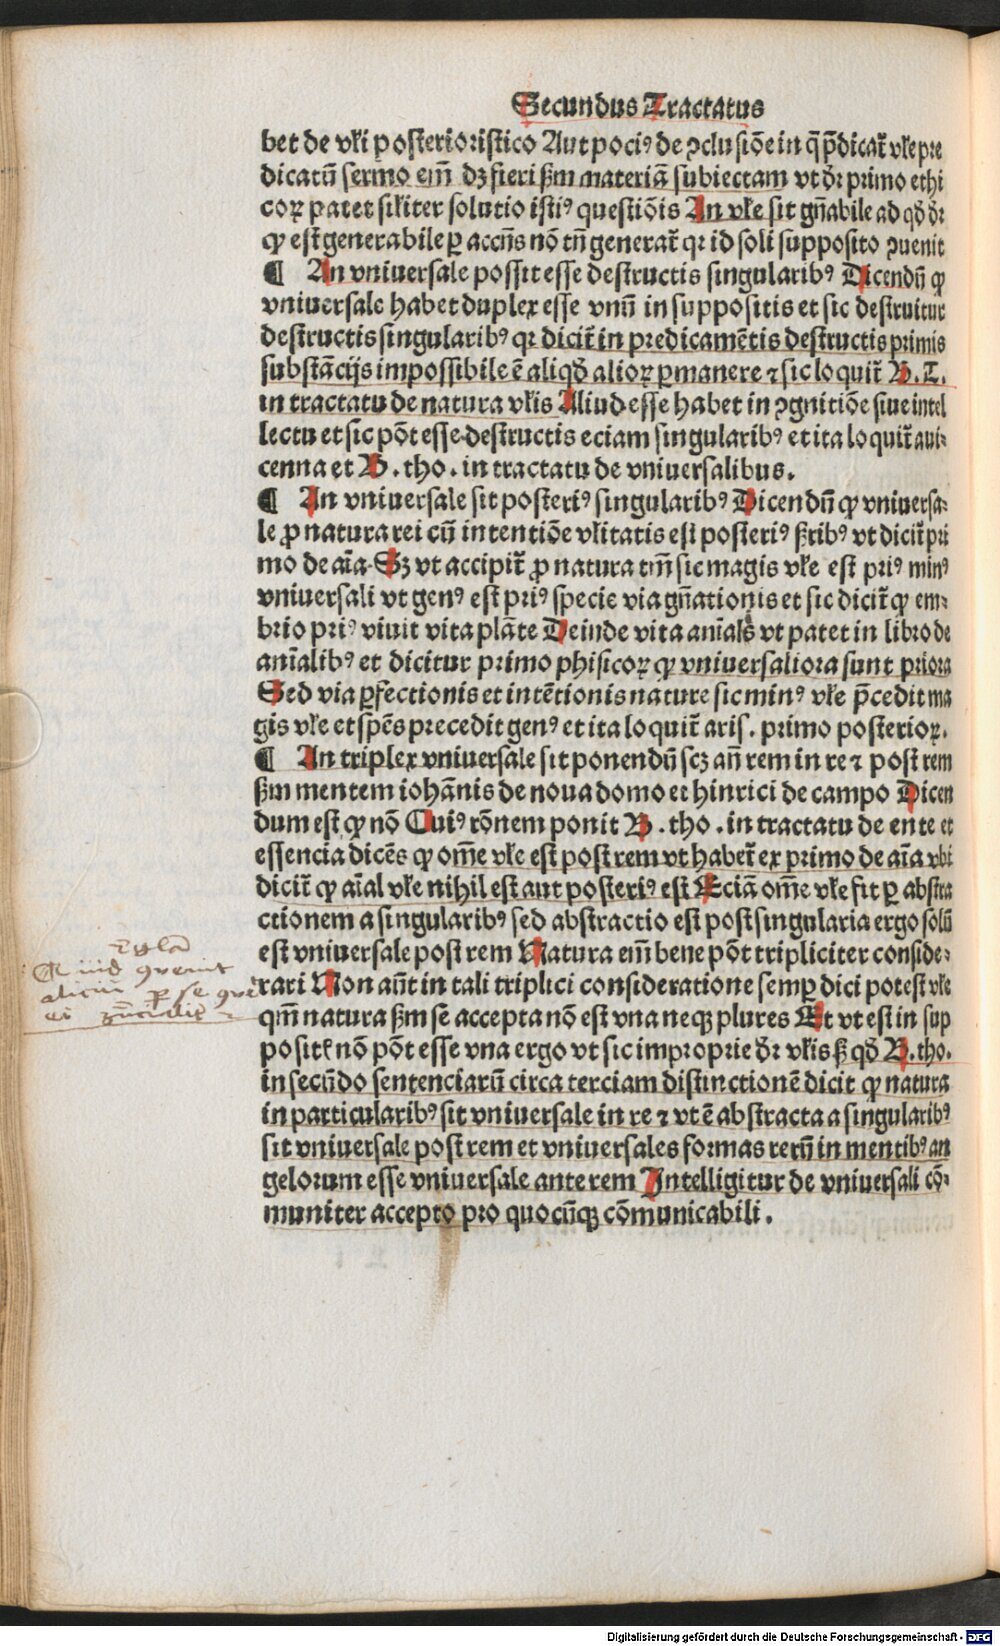 Secundus Tractatus
bet de vłi posterioristico Aut pociꝰ de ꝯclusiōe in q̄ p̄dicat᷑ vłe pre
dicatū sermo em̄ dꝫ fieri ẜm materiā subiectam vt dr̄ primo ethi
coꝝ patet siłiter solutio istiꝰ questiōis An vłe sit gn̄abile ad qđ dr̄
ꝙ est generabile ꝑ accn̄s nō tn̄ generat᷑ qꝛ id soli supposito ꝯuenit
¶ An vniuersale possit esse destructis singularibꝰ Dicendū ꝙ
vniuersale habet duplex esse vnū in suppositis et sic destruitur
destructis singularibꝰ qꝛ dicit᷑ in predicamētis destructis primis
substācijs impossibile ē aliqđ alioꝝ ꝑmanere ⁊ sic loquit᷑ B. T.
in tractatu de natura vłis Aliud esse habet in ꝯgnitiōe siue intel
lectu et sic pōt esse destructis eciam singularibꝰ et ita loquit᷑ aui⸗
cenna et B. tho. in tractatu de vniuersalibus.
¶ An vniuersale sit posteriꝰ singularibꝰ Dicendū ꝙ vniuersa⸗
le ꝓ natura rei cū intentiōe vłitatis est posteriꝰ ẜribꝰ vt dicit᷑ pri
mo de aīa Sꝫ vt accipit᷑ ꝓ natura tm̄ sic magis vłe est priꝰ minꝰ
vniuersali vt genꝰ est priꝰ specie via gn̄ationis et sic dicit᷑ ꝙ em⸗
brio priꝰ viuit vita plāte Deinde vita anīalꝭ vt patet in libro de
anīalibꝰ et dicitur primo phisicoꝝ ꝙ vniuersaliora sunt priora
Sed via ꝑfectionis et intētionis nature sic minꝰ vłe p̄cedit ma
gis vłe et spēs precedit genꝰ et ita loquit᷑ aris. primo posterioꝝ.
¶ An triplex vniuersale sit ponendū scꝫ an̄ rem in re ⁊ post rem
ẜm mentem iohānis de noua domo et hinrici de campo Dicen
dum est ꝙ nō Cuiꝰ rōnem ponit B. tho. in tractatu de ente et
essencia dicēs ꝙ om̄e vłe est post rem vt habet᷑ ex primo de aīa vbi
dicit᷑ ꝙ aīal vłe nihil est aut posteriꝰ est Eciā om̄e vłe fit ꝑ abstra
ctionem a singularibꝰ sed abstractio est post singularia ergo solū
est vniuersale post rem Natura em̄ bene pōt tripliciter conside⸗
rari Non aūt in tali triplici consideratione semꝑ dici potest vłe
qm̄ natura ẜm se accepta nō est vna neqꝫ plures Et vt est in sup
positꝭ nō pōt esse vna ergo vt sic improprie dr̄ vłis ẜ qđ B. tho.
in secūdo sentenciarū circa terciam distinctionē dicit ꝙ natura
in particularibꝰ sit vniuersale in re ⁊ vt ē abstracta a singularibꝰ
sit vniuersale post rem et vniuersales formas rerū in mentibꝰ an
gelorum esse vniuersale ante rem Intelligitur de vniuersali cō⸗
muniter accepto pro quocūqꝫ cōmunicabili.
Digitalisierung gefördert durch die Deutsche Forschungsgemeinschaft - DFG